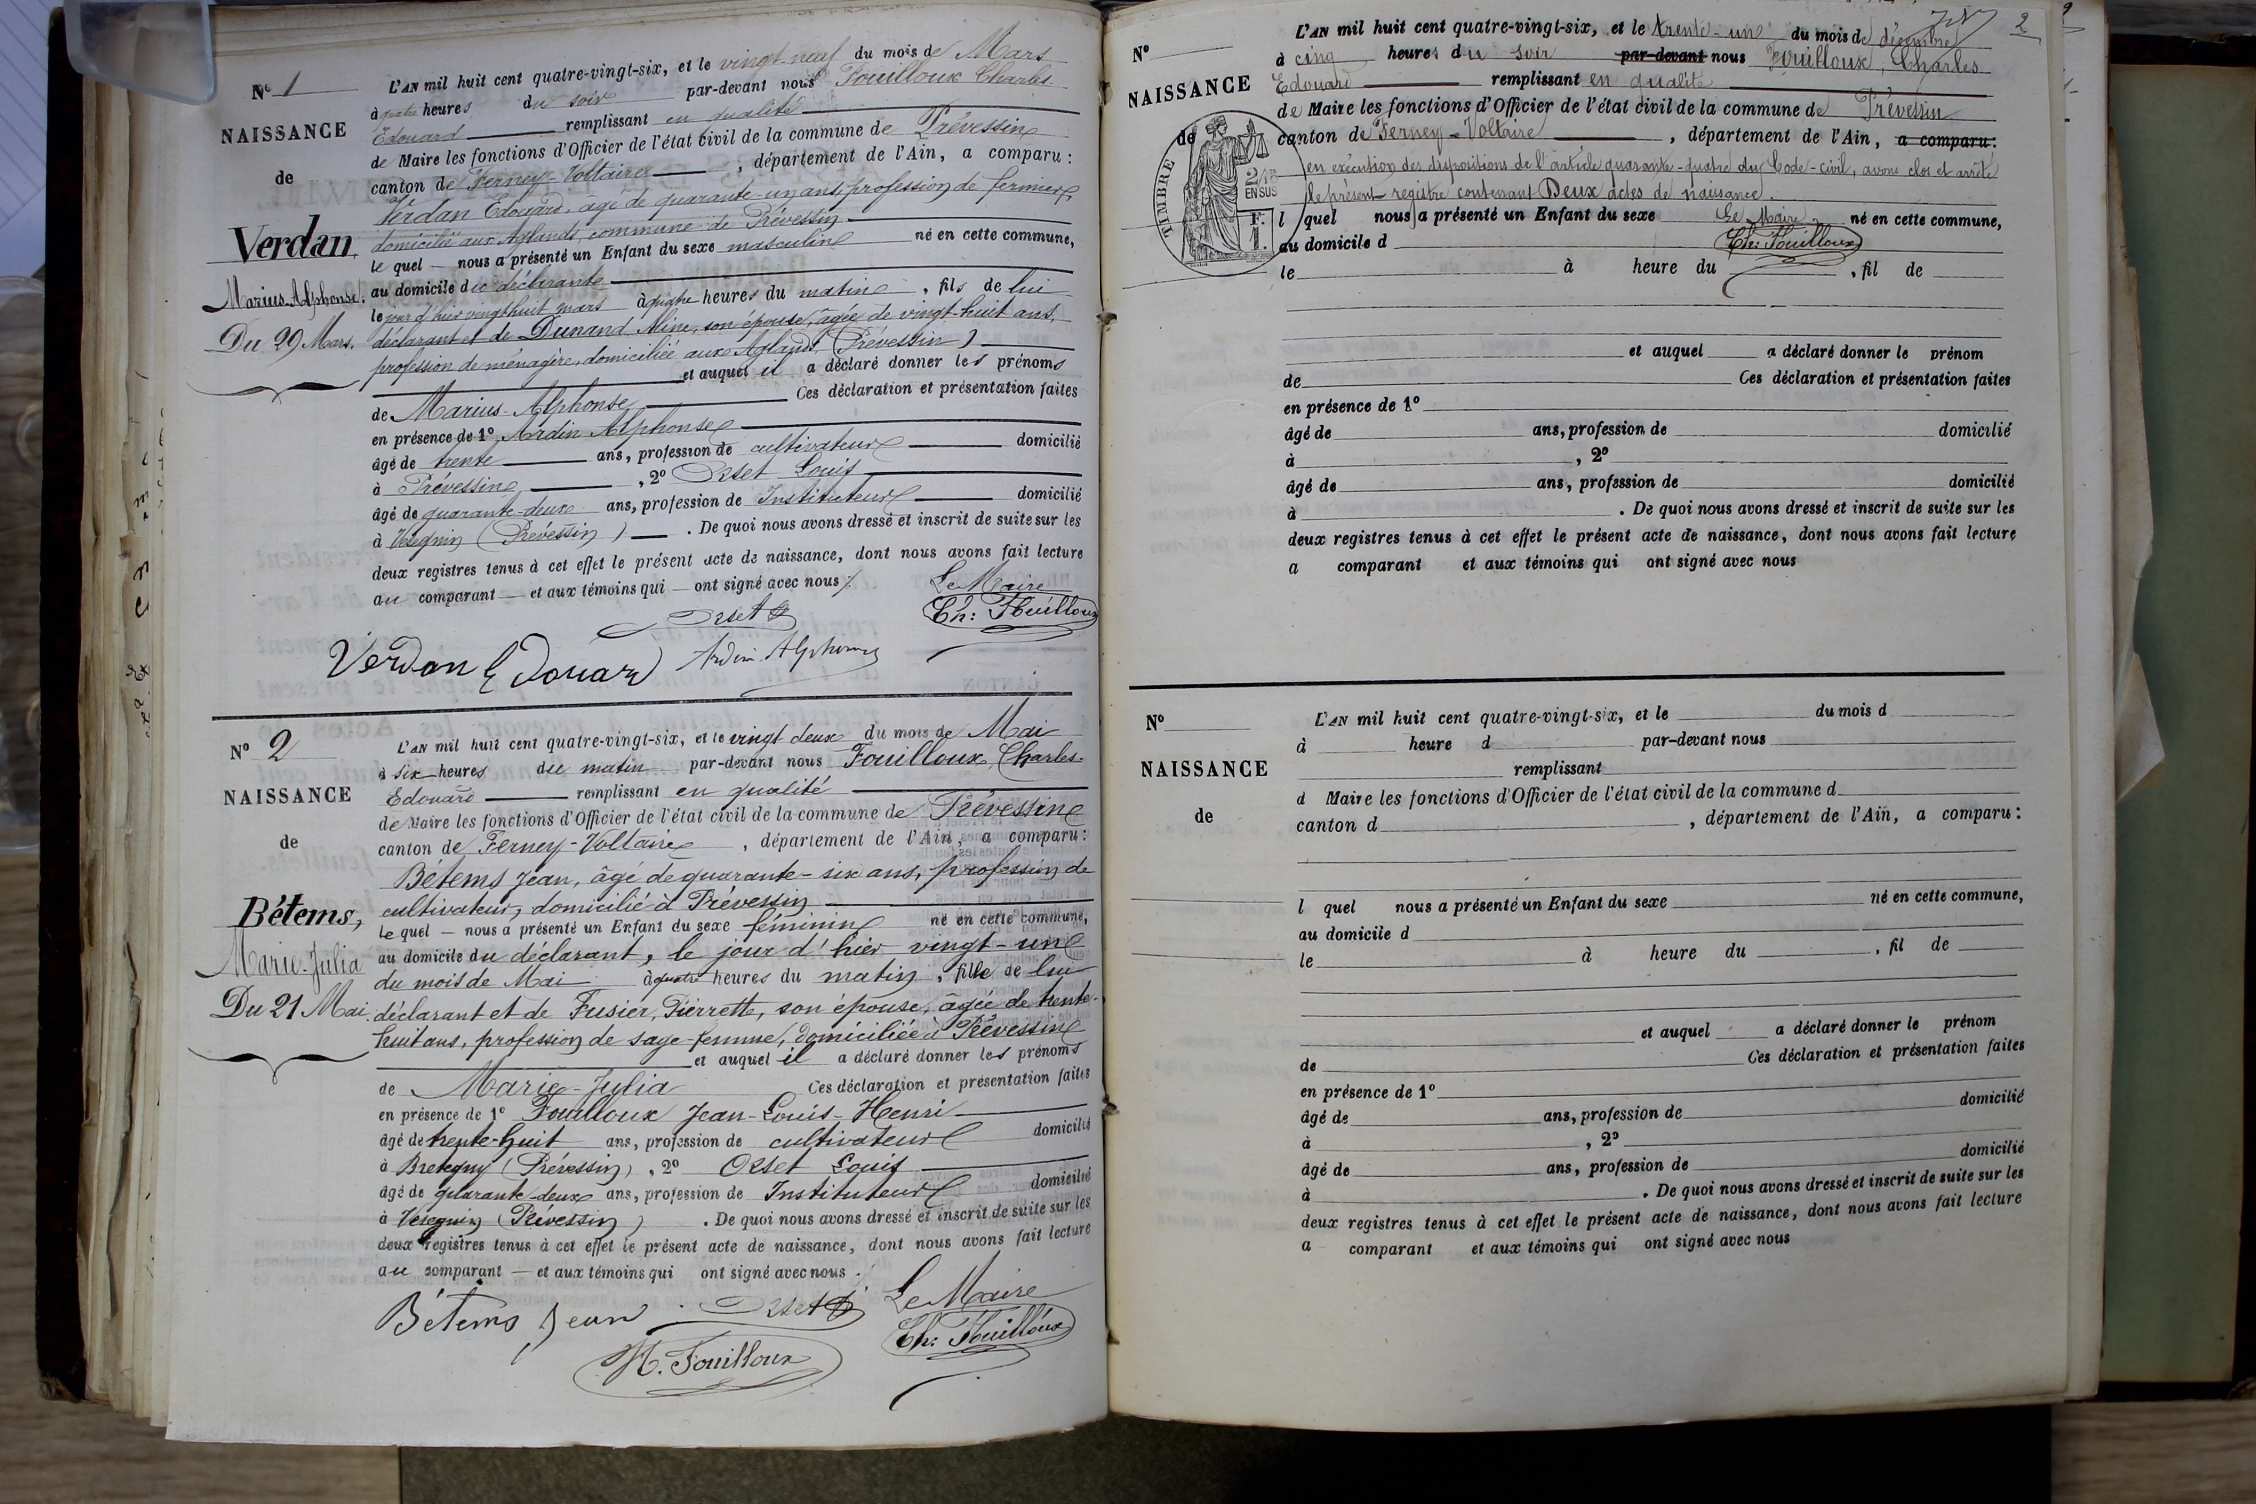 N° 1
NAISSANCE
de
Verdan,
Marius-Alphonse.
Du 29 Mars.
L'AN mil huit cent quatre-vingt-six, et le vingt-neuf du mois de Mars
à quatre heures du soir par-devant nous Fouilloux Charles
Edouard remplissant en qualité
de Maire les fonctions d'Officier de l'état civil de la commune de Prévessin
canton de Ferney-Voltaire, département de l'Ain, a comparu :
Verdan Edouard, âgé de quarante-un ans, profession de fermier,
domicilié aux Aglands, commune de Prévessin
le quel nous a présenté un Enfant du sexe masculin né en cette commune,
au domicile du déclarant
le jour d'hier vingt huit mars à quatre heures du matin, fils de lui
déclarant et de Dunand Aline, son épouse, âgée de vingt-huit ans,
profession de ménagère, domiciliée aux Aglands (Prévessin)
et auquel il a déclaré donner les prénoms
de Marius-Alphonse Ces déclaration et présentation faites
en présence de 1° Ardin Alphonse
âgé de trente ans, profession de cultivateur domicilié
à Prévessin, 2° Orset Louis
âgé de quarante-deux ans, profession de Instituteur domicilié
à Vésegnin (Prévessin). De quoi nous avons dressé et inscrit de suite sur les
deux registres tenus à cet effet le présent acte de naissance, dont nous avons fait lecture
au comparant et aux témoins qui ont signé avec nous
Le Maire
Orset Ch: Fouilloux
Verdan Edouard Ardin Alphonse
N° 2
NAISSANCE
de
Bétems,
Marie-Julia
Du 21 Mai.
L'AN mil huit cent quatre-vingt-six, et le vingt deux du mois de Mai
à six heures du matin par-devant nous Fouilloux, Charles-
Edouard remplissant en qualité
de Maire les fonctions d'Officier de l'état civil de la commune de Prévessin
canton de Ferney-Voltaire, département de l'Ain, a comparu :
Bétems Jean, âgé de quarante-six ans, profession de
cultivateur, domicilié à Prévessin
le quel nous a présenté un Enfant du sexe féminin né en cette commune,
au domicile du déclarant, le jour d'hier vingt-un
du mois de Mai à quatre heures du matin, fille de lui
déclarant et de Fusier, Pierrette, son épouse, âgée de trente-
huit ans, profession de sage-femme, domiciliée à Prévessin
et auquel il a déclaré donner les prénoms
de Marie-Julia Ces déclaration et présentation faites
en présence de 1° Fouilloux Jean-Louis-Henri
âgé de trente-huit ans, profession de cultivateur domicilié
à Bretegny (Prévessin), 2° Orset Louis
âgé de quarante-deux ans, profession de Instituteur domicilié
à Vésegnin (Prévessin). De quoi nous avons dressé et inscrit de suite sur les
deux registres tenus à cet effet le présent acte de naissance, dont nous avons fait lecture
au comparant et aux témoins qui ont signé avec nous.
Bétems Jean Orset Le Maire
H. Fouilloux Ch: Fouilloux
2
N°
NAISSANCE
de
TIMBRE
EN SUS
L'AN mil huit cent quatre-vingt-six, et le trente-un du mois de décembre
à cinq heures du soir par-devant nous Fouilloux, Charles
Edouard remplissant en qualité
de Maire les fonctions d'Officier de l'état civil de la commune de Prévessin
canton de Ferney-Voltaire, département de l'Ain, a comparu :
en exécution des dispositions de l'article quarante-quatre du Code-civil, avons clos et arrêté
le présent registre contenant Deux actes de naissance.
l quel nous a présenté un Enfant du sexe Le Maire né en cette commune,
au domicile d Ch: Fouilloux
le à heure du , fil de
et auquel a déclaré donner le prénom
de Ces déclaration et présentation faites
en présence de 1°
âgé de ans, profession de domicilié
à , 2°
âgé de ans, profession de domicilié
à . De quoi nous avons dressé et inscrit de suite sur les
deux registres tenus à cet effet le présent acte de naissance, dont nous avons fait lecture
a comparant et aux témoins qui ont signé avec nous
N°
NAISSANCE
de
L'AN mil huit cent quatre-vingt-six, et le du mois d
à heure d par-devant nous
remplissant
d Maire les fonctions d'Officier de l'état civil de la commune d
canton d , département de l'Ain, a comparu :
l quel nous a présenté un Enfant du sexe né en cette commune,
au domicile d
le à heure du , fil de
et auquel a déclaré donner le prénom
de Ces déclaration et présentation faites
en présence de 1°
âgé de ans, profession de domicilié
à , 2°
âgé de ans, profession de domicilié
à . De quoi nous avons dressé et inscrit de suite sur les
deux registres tenus à cet effet le présent acte de naissance, dont nous avons fait lecture
a comparant et aux témoins qui ont signé avec nous